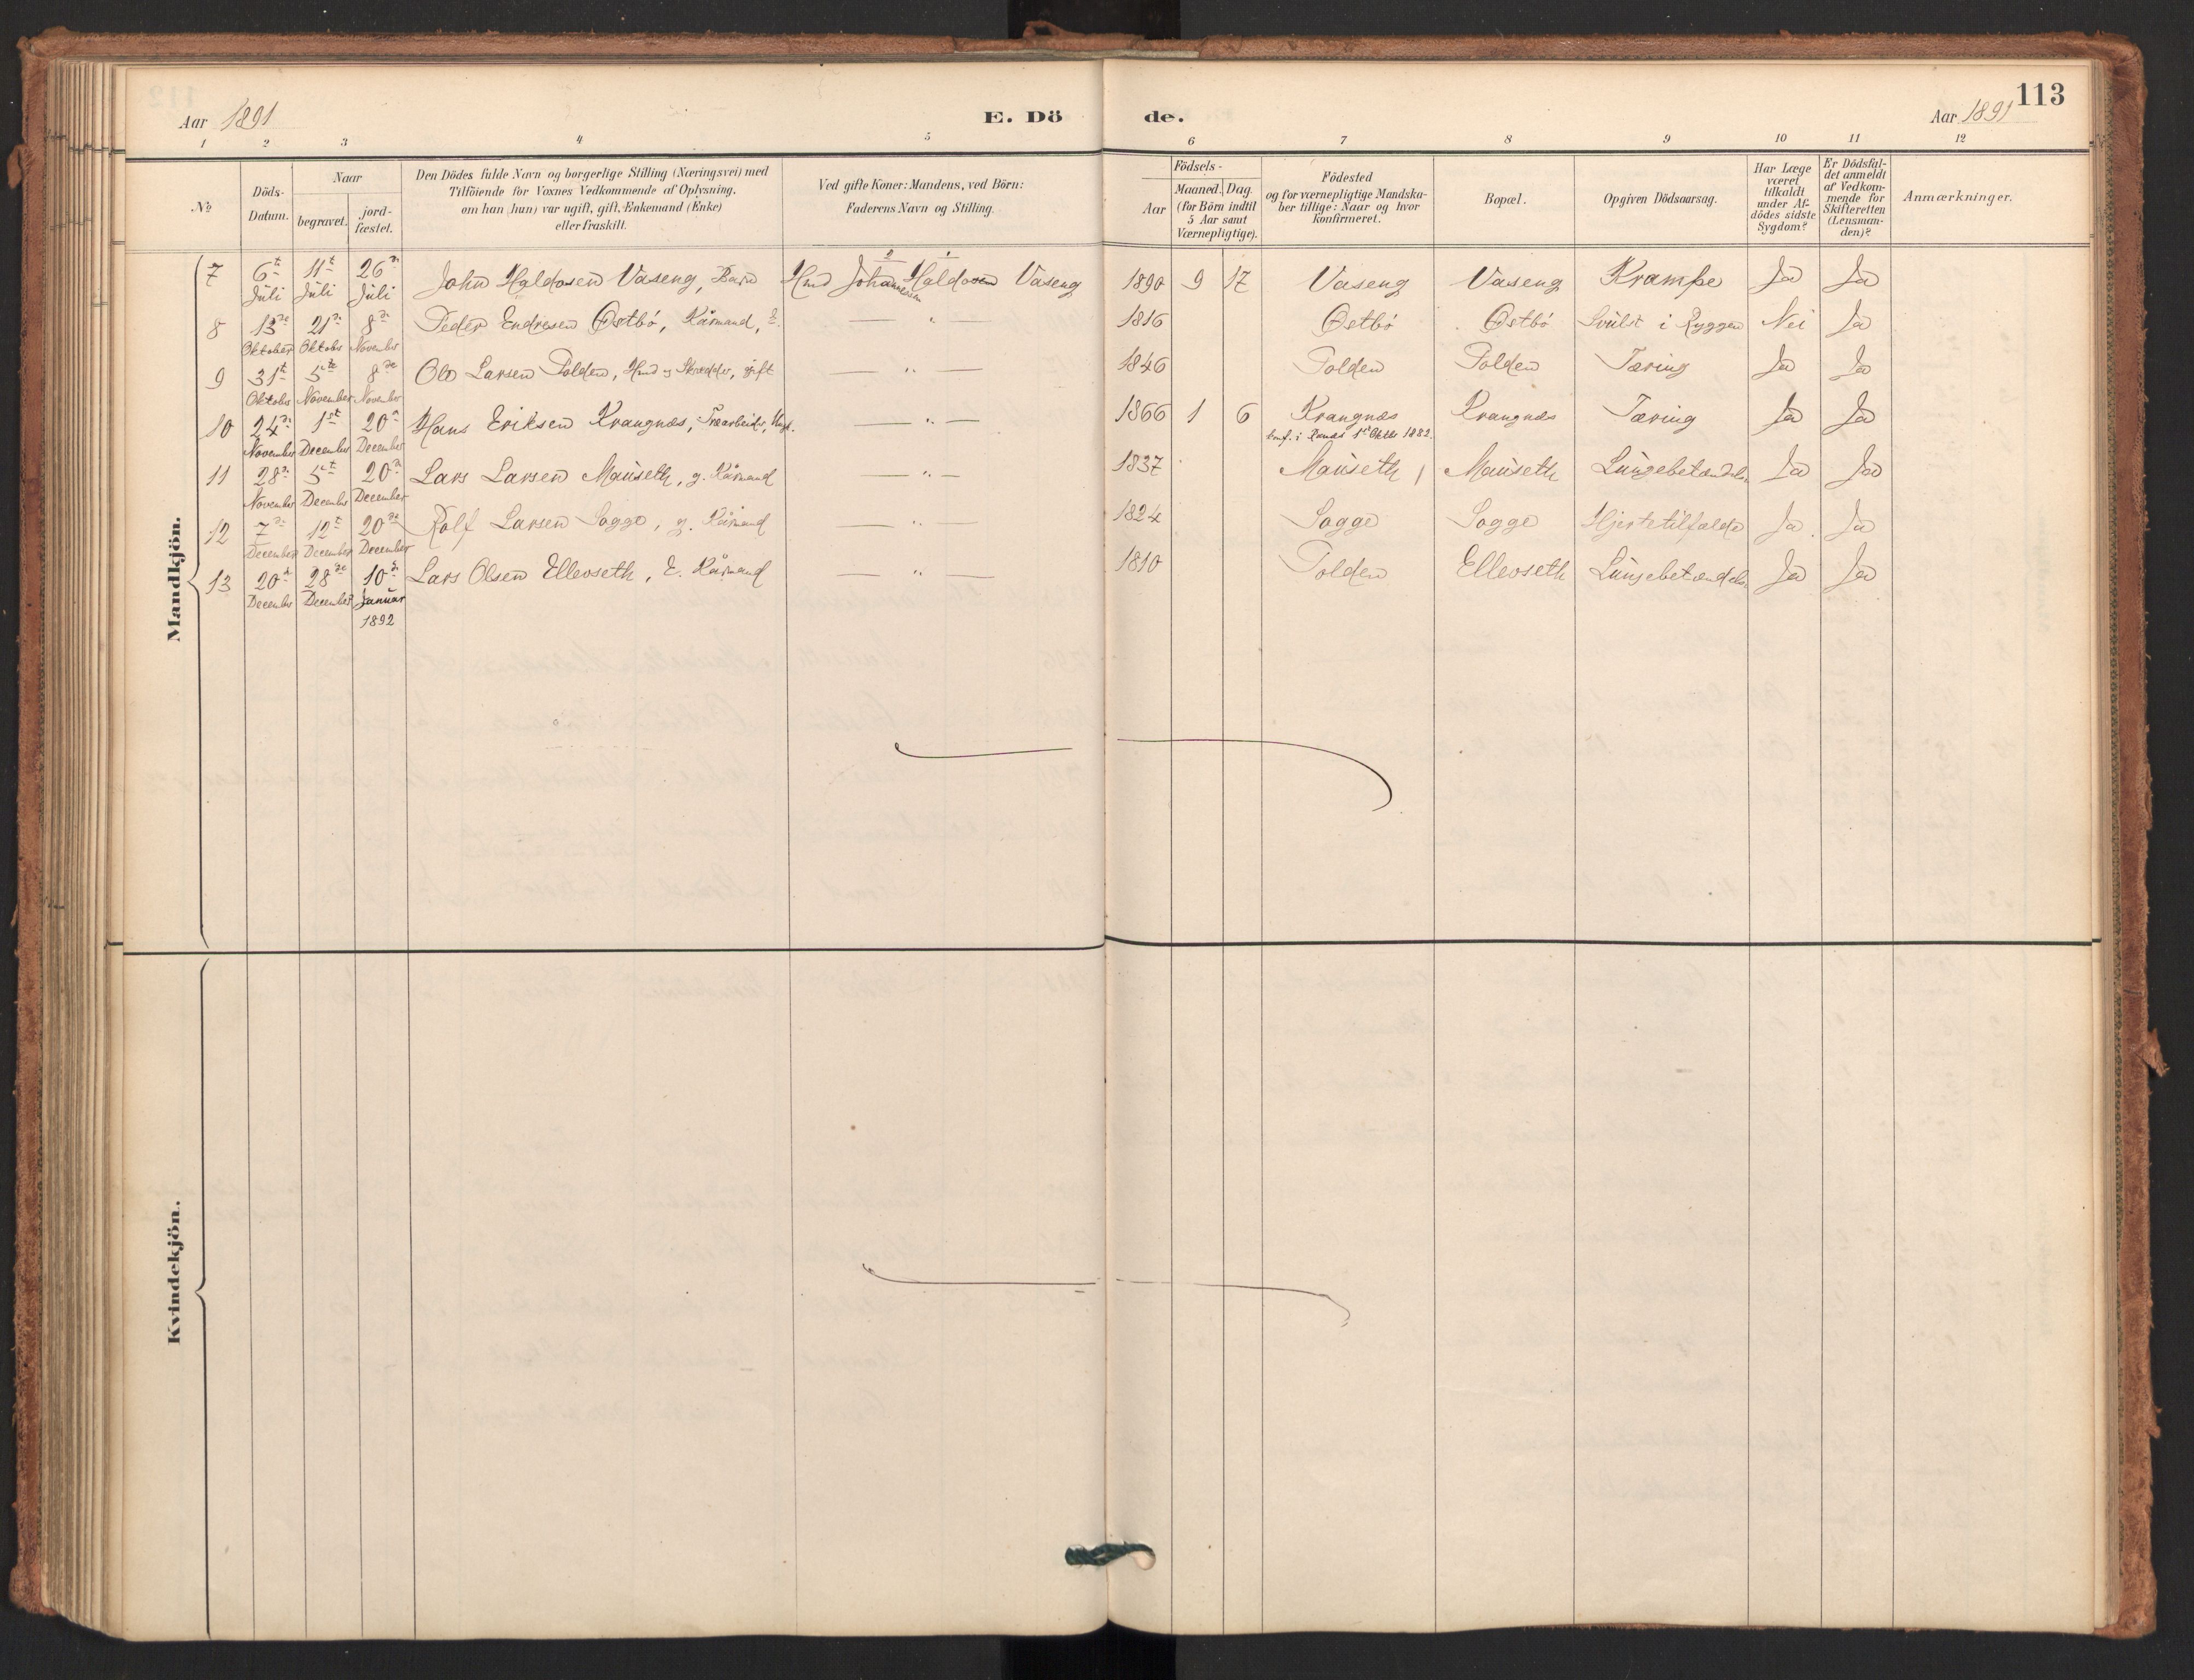 113
Aar 1891 E. Dö de. Aar 1891
1 2 3 4 5 6 7 8 9 10 11 12
No
Döds-Datum.
Naar
begravet. jord-fæstet.
Den Dödes fulde Navn og borgerlige Stilling (Næringsvei) med
Tilföiende for Voxnes Vedkommende af Oplysning,
om han (hun) var ugift, gift, Enkemand (Enke)
eller fraskilt.
Ved gifte Koner: Mandens, ved Börn:
Faderens Navn og Stilling.
Födsels-
Aar Maaned. Dag.
(for Börn indtil
5 Aar samt
Værnepligtige).
Födested
og for værnepligtige Mandska-
ber tillige: Naar og hvor
konfirmeret.
Bopæl.
Opgiven Dödsaarsag.
Har Læge
været
tilkaldt
under Af-
dödes sidste
Sygdom?
Er Dödsfal-
det anmeldt
af Vedkom-
mende for
Skifteretten
(Lensman-
den)?
Anmærkninger.
Mandkjön.
7 6t Juli 11t Juli 26de Juli John Haldosen Vaseng, Barn Hmd Johannesen Haldosen Vaseng 1890 9 17 Vaseng Vaseng Krampe Ja Ja
8 13de Oktober 21de Oktobr 8de November Peder Endresen Østbö, Kårmand, — " — 1816 Østbö Østbö Svulst i Ryggen Nei Ja
9 31t Oktobr 5te November 8de November Ole Larsen Tolden, Hmd og Skrædder, gift — " — 1846 Tolden Tolden Tæring Ja Ja
10 24de November 1st December 20de December Hans Eriksen Krangnæs, Træarbeider, Ung. — " — 1866 1 6 Krangnæs Krangnæs Tæring Ja Ja
konf. i 1st Oktbr 1882.
11 28de November 5t December 20de December Lars Larsen Mauseth, g. Kårmand — " — 1837 Mauseth Mauseth Lungebetændelse Ja Ja
12 7de December 12t December 20de December Rolf Larsen Sogge, g. Kårmand — " — 1824 Sogge Sogge Hjertetilfælde Ja Ja
13 20de December 28de December 10de Januar Lars Olsen Ellevseth, E. Kårmand — " — 1810 Tolden Ellevseth Lungebetændelse Ja Ja
1892
Kvindekjön.